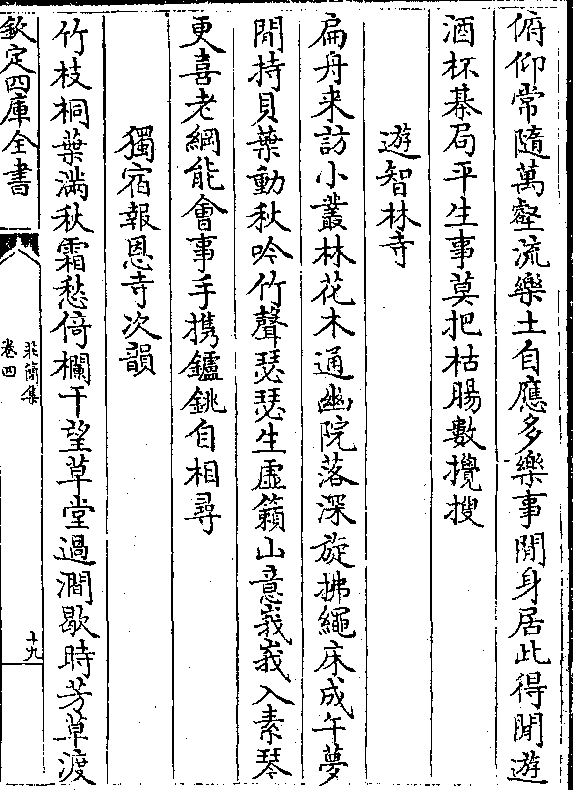 俯仰常隨萬壑流樂土自應多樂事閒身居此得閒遊
酒杯棊局平生事莫把枯腸數攪搜
遊智林寺
扁舟来訪小叢林花木通幽院落深旋拂繩床成午夢
閒持貝葉動秋吟竹聲瑟瑟生虛籟山意峩峩入素琴
更喜老綱能會事手攜鑪銚自相尋
獨宿報恩寺次韻
竹枝桐葉滿秋霜愁倚欄干望草堂過澗歇時芳草渡
欽定四庫全書
莊簡集
卷四
十九